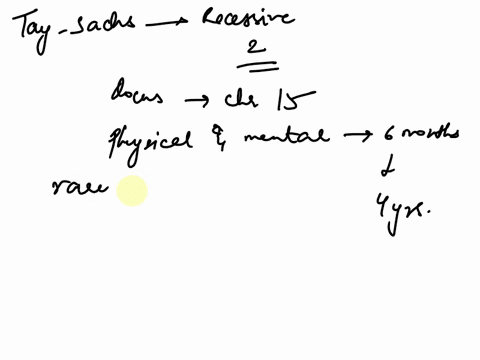 Tay-Sachs → Recessive
2
Locus → chr 15
Physical & mental → 6 months
↓
rare
4 yrs.